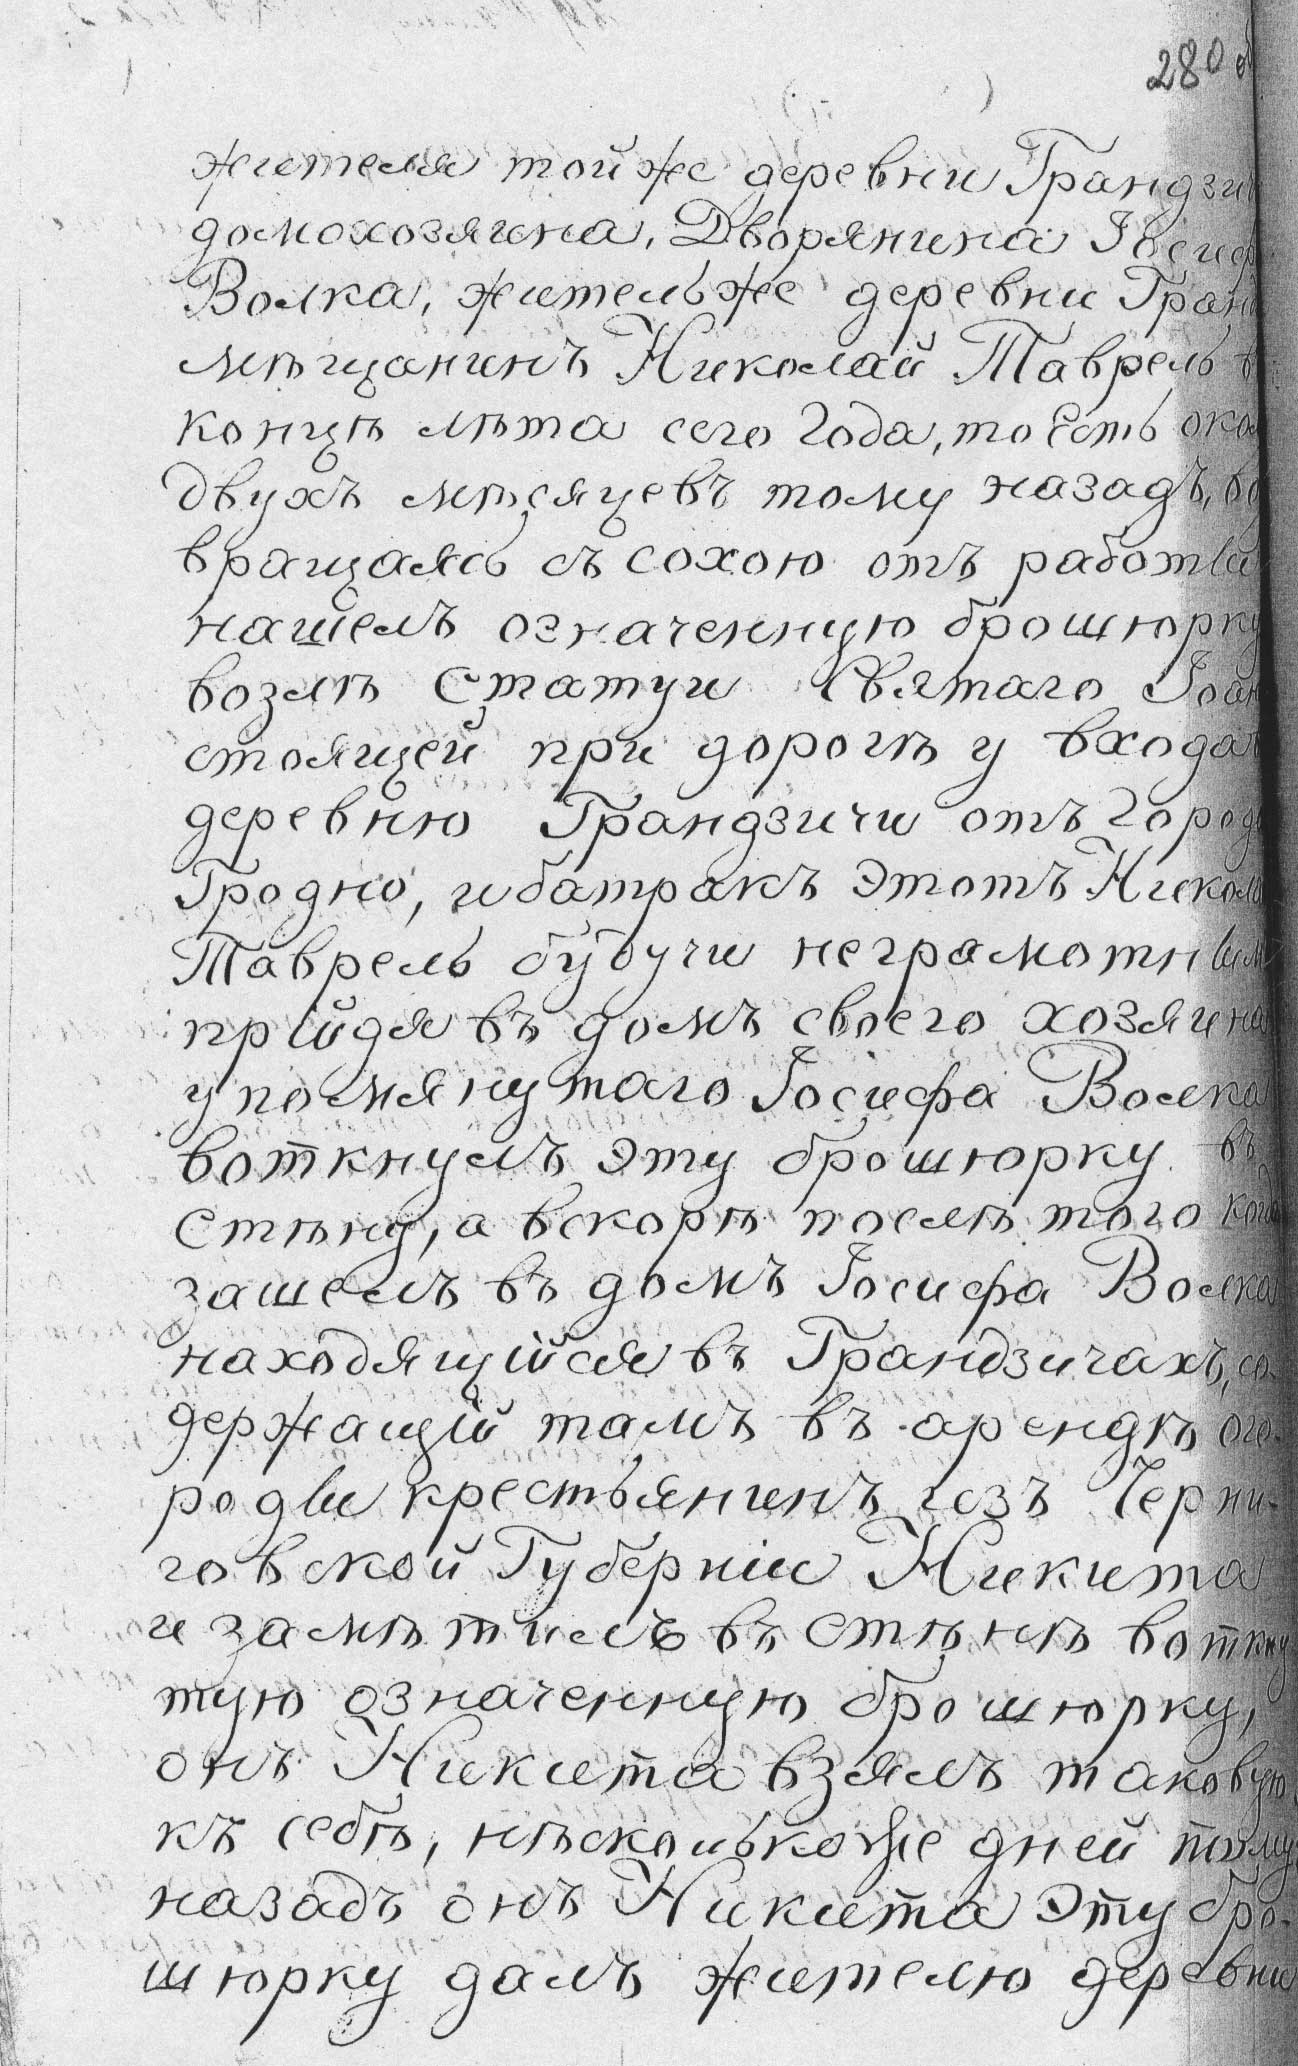 280 об
жителя тойже деревни Грандзи
домохозяина, Дворянина Іосиф
Волка, жительже деревни Гран
мѣщанинъ Николай Таврель в
концѣ лѣта сего Года, то Есть окол
двухъ мѣсяцевъ тому назадъ, воз
вращаясь съ сохою отъ работы
нашелъ означенную брошюрку
возлѣ Статуи Святаго Іоан
стоящей при дорогѣ у входа в
деревню Грандзичи отъ Города
Гродно, и батракъ этотъ Никола
Таврель будучи неграмотным
прійдя въ домъ своего хозяина
упомянутаго Іосифа Волка
воткнулъ эту брошюрку въ
Стѣну, а вскорѣ послѣ того когда
зашелъ въ домъ Іосифа Волка
находящійся въ Грандзичахъ, со-
держащій тамъ въ арендѣ ого-
роды крестьянинъ изъ Черни-
говской Губерніи Никита
и замѣтилъ въ Стѣнѣ воткну
тую означенную брошюрку,
онъ Никита взялъ таковую
къ себѣ, нѣсколькоже дней тому
назадъ онъ Никита эту бро-
шюрку далъ жителю деревни